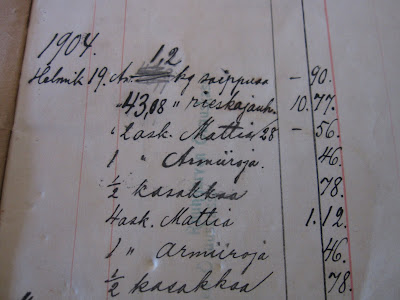 1904.
1,2
Helmik 19. kg saippuaa – 90.
43,08 " rieskajauh. 10.77.
2 ask. Mattia, 28 – 56.
1 " Armiiroja. 46.
½ kasakkaa 78.
4 ask. Mattia 1.12.
1 " armiiroja 46.
" ½ kasakkaa 78.